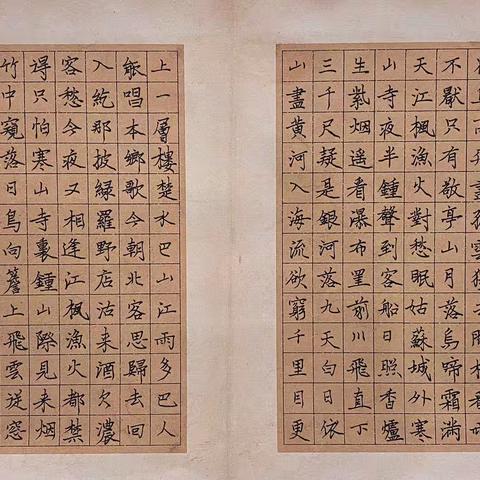 不厭只有敬亭山月落烏啼霜滿
天江楓漁火對愁眠姑蘇城外寒
山寺夜半鍾聲到客船日照香爐
生紫烟遥看瀑布罣前川飛直下
三千尺疑是銀河落九天白日依
山盡黄河入海流欲窮千里目更
上一層樓楚水巴山江雨多巴人
能唱本鄉歌今朝北客思歸去回
入紇那披緑羅野店沽来酒欠濃
客愁今夜又相逢江楓漁火都禁
得只怕寒山寺裏鍾山際見来烟
竹中窺落日鳥向簷上飛雲從窓